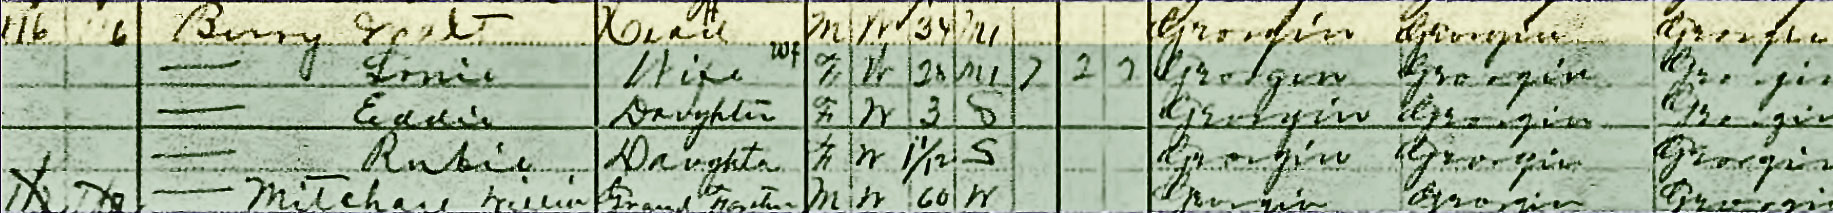 116 6 Berry Head M W 34 M1 Georgia Georgia Georgia
Lonie Wife F W 28 M1 7 2 2 Georgia Georgia Georgia
Eddie Daughter F W 3 S Georgia Georgia Georgia
Rubie Daughter F W 1 1/12 S Georgia Georgia Georgia
Mitcham Willie Grand Father M W 60 W Georgia Georgia Georgia